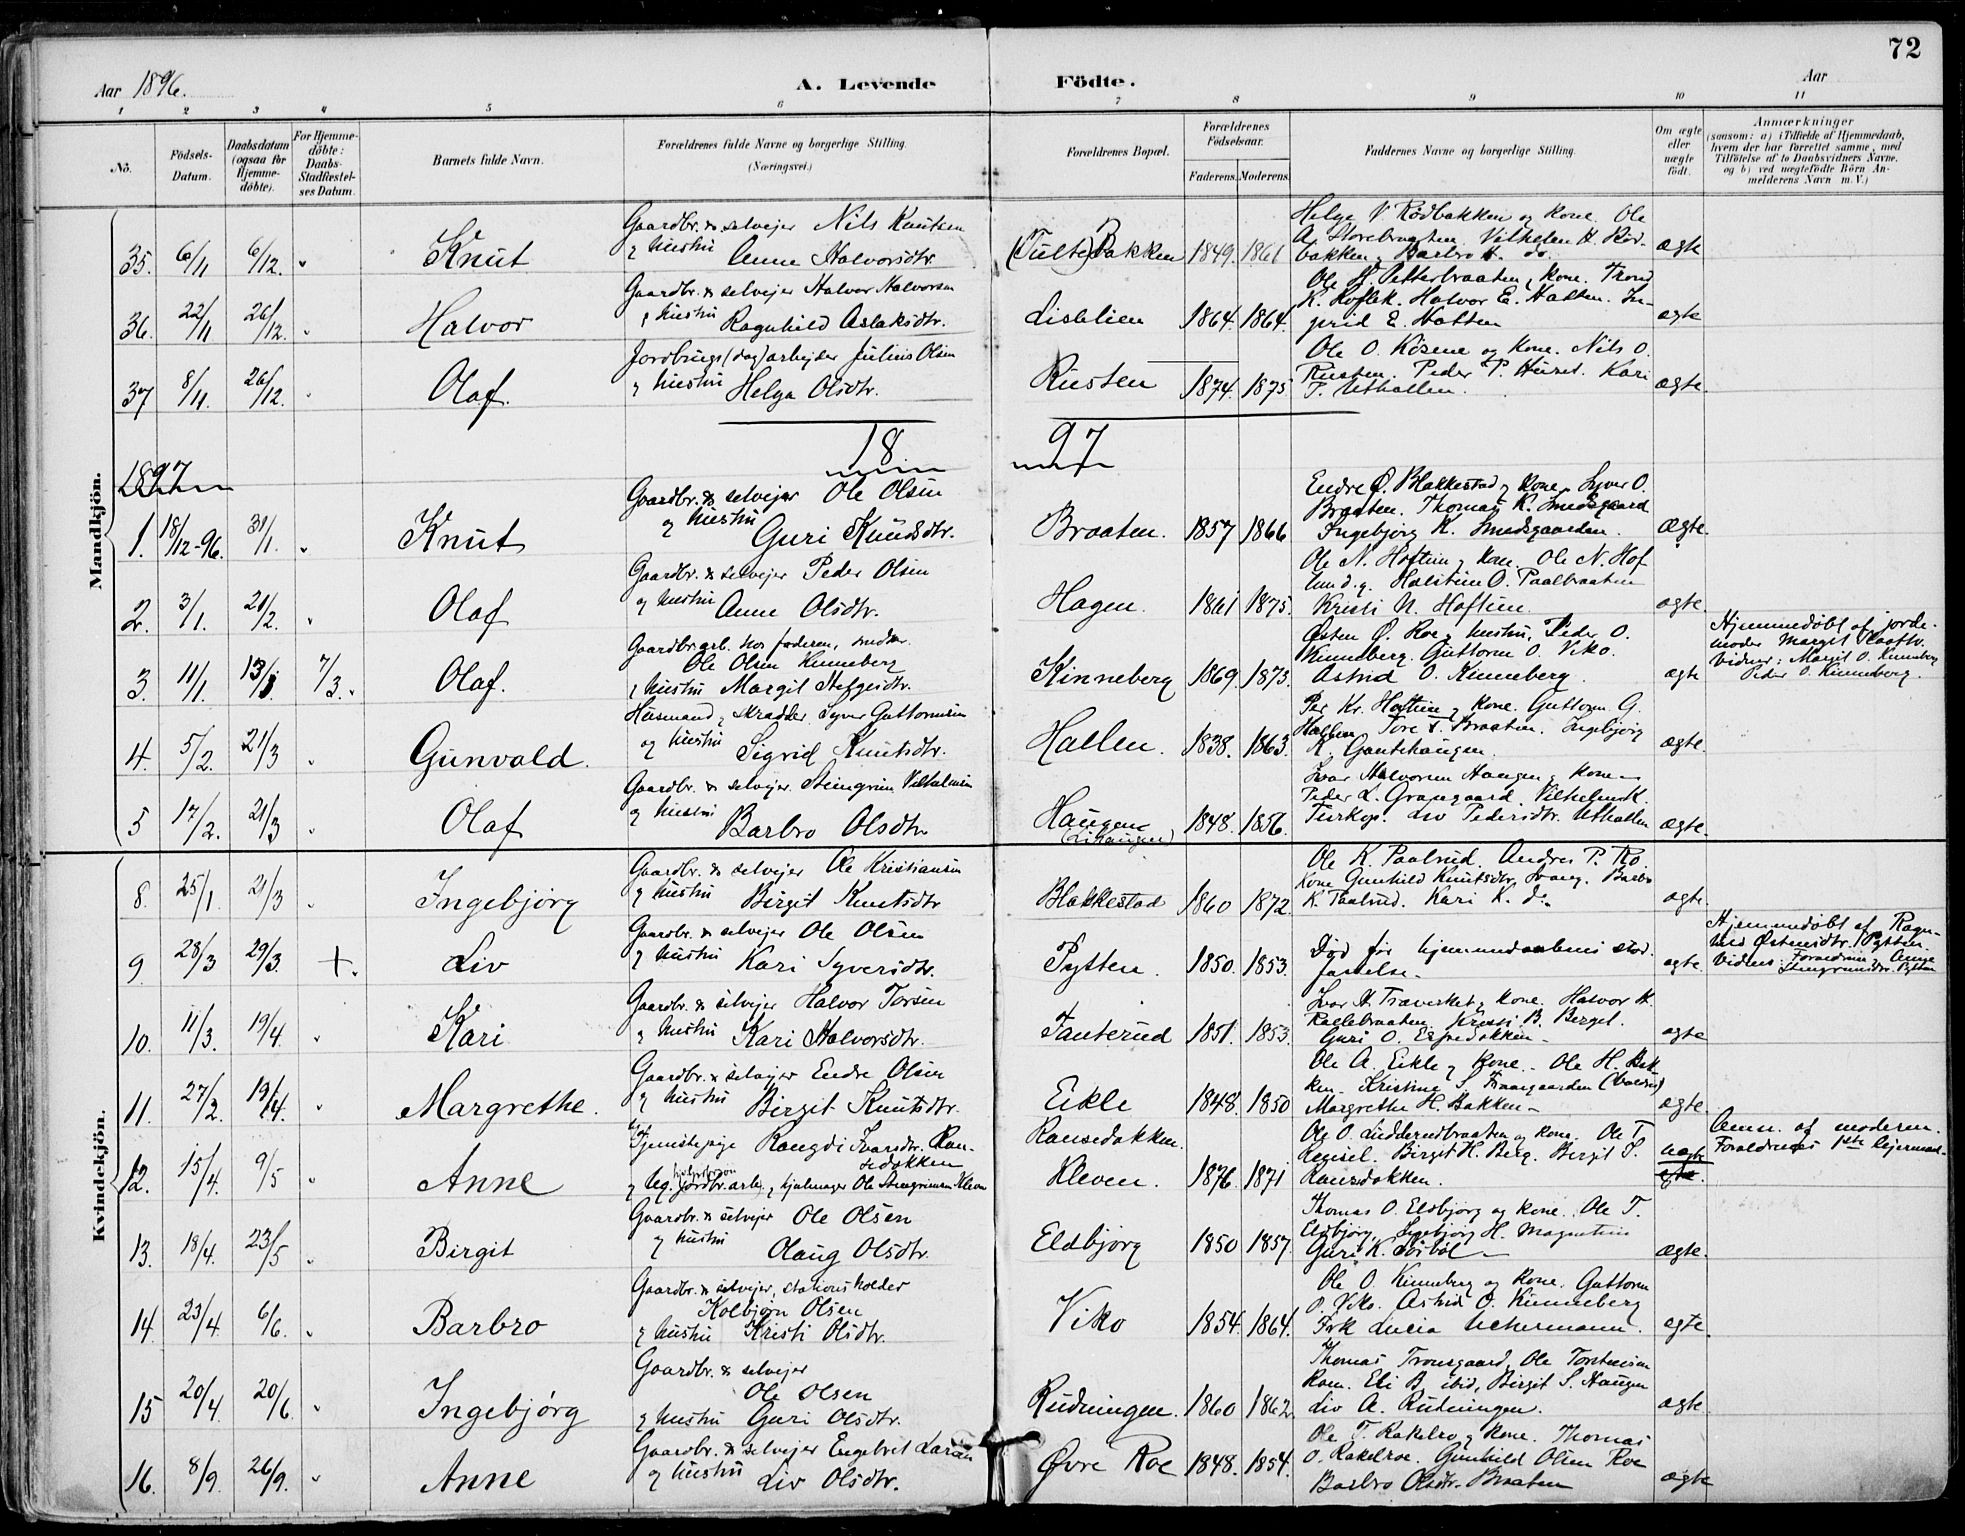 72
Aar 1896. A. Levende Födte. Aar
1 2 3 4 5 6 7 8 9 10 11
No. Födsels-Datum. Daabsdatum (ogsaa for Hjemmedöbte). For Hjemmedöbte: Daabs-Stadfæstelses Datum. Barnets fulde Navn. Forældrenes fulde Navne og borgerlige Stilling. (Næringsvei.) Forældrenes Bopæl. Forældrenes Födselsaar. Faderens. Moderens. Faddernes Navne og borgerlige Stilling. Om ægte eller uægte födt. Anmærkninger (saasom: a) i Tilfælde af Hjemmedaab, hvem der har forrettet samme, med Tilföielse af to Daabsvidners Navne, og b) ved uægtefödte Börn Anmelderens Navn m. V.)
Mandkjön.
35. 6/11 6/12. " Knut
Gaardbr. & selvejer Nils Knutsen
og hustru Anne Halvorsdtr.
(Tufte)Bakken 1849. 1861
Helge V Rødbakken og kone. Ole
A. Storebraaten. Vilhelm H. Rød-
bakken, Barbro H. do.
ægte
36. 22/11 26/12. " Halvor
Gaardbr. & selvejer Halvor Halvorsen
og hustru Ragnhild Aslaksdtr.
Lislelien 1864. 1864.
Ole H. Petterbraaten, kone. Trond
K. Hoflek. Halvor E. Hatten. In-
grid E. Hatten
ægte
37 8/11. 26/12. " Olaf.
Jordbrugs(dag)arbejder Julius Olsen
og hustru Helga Olsdtr.
Rusten 1874. 1875.
Ole O. Kösene og kone. Nils O.
Rusten. Peder P. Huset. Kari
T. Uthallen.
ægte.
1897 18 97
1. 18/12-96. 31/1. " Knut
Gaardbr. & selvejer Ole Olsen
og hustru Guri Knudsdtr.
Braaten. 1857 1866
Endre Ø. Blakkestad og kone. Syver O.
Braaten. Thomas K. Smedsgaard
Ingebjörg K. Smedsgaarden.
Ægte.
2. 3/1. 21/2. " Olaf
Gaardbr. & selvejer Peder Olsen
og hustru Anne Olsdtr.
Hagen. 1861 1875.
Ole N. Hoftun og kone. Ole N. Hof
tun d.y. Halstein O. Paalbraaten
Kristi N. Hoftun.
ægte.
3. 11/1. 13/1 7/3. " Olaf.
Gaardbr.arb. hos faderen, smed
Ole Olsen Kinneberg
og hustru Margit Helgesdtr.
Kinneberg 1869. 1873.
Østen Ø. Roe og hustru, Peder O.
Kinneberg. Guttorm O. Viko.
Astrid O. Kinneberg.
ægte
Hjemmedøbt af jorde-
moder Margit Olafsdtr.
Vidner: Margit O. Kinneberg
Peder O. Kinneberg.
4. 5/2. 21/3 " Gunvald.
Husmand og skrædder Syver Guttormsen
og hustru Sigrid Knutsdtr.
Hallen. 1838. 1863.
Per Kr. Hoftun og kone. Guttorm G.
Hallen. Tore T. Braaten. Ingebjörg
K. Gautehaugen.
ægte.
5 17/2. 21/3 " Olaf
Gaardbr. & selvejer Steingrim Vilhelmsen
og hustru Barbro Olsdtr.
Haugen (Lihaugen) 1848. 1856.
Ivar Halvorsen Haugen og kone
Peder L. Grangaard. Vilhelm K.
Turkop. Liv Pedersdtr. Uthallen
ægte.
Kvindekjön.
8. 25/1. 21/3 " Ingebjörg
Gaardbr. & selvejer Ole Kristiansen
og hustru Birgit Knutsdtr.
Blakkestad 1860 1872.
Ole K. Paalrud. Andres P. Ro
kone Gunhild Knutsdtr. Barbro
K. Paalrud. Kari K. do.
ægte.
9. 28/3 29/3. +. Liv
Gaardbr. & selvejer Ole Olsen
og hustru Kari Syversdtr.
Pytten. 1850. 1853.
Død før hjemmedaabens stad-
fæstelse.
ægte.
Hjemmedøbt af Ragn-
hild Østensdtr. Pytten.
Vidner: Forældrene og Anne
Steingrimsdtr. Pytten
10. 11/3. 19/4. " Kari
Gaardbr. & selvejer Halvor Torsen
og hustru Kari Halvorsdtr.
Fauterud 1851. 1853.
Ivar H. Træverket og kone. Halvor H.
Rallebraaten. Kristi B. Berget.
Guri O. Espedokken
ægte
11. 27/2. 19/4. " Margrethe.
Gaardbr. & selvejer Endre Olsen
og hustru Birgit Knutsdtr.
Eikle 1848. 1850
Ole A. Eikle og kone. Ole H. Bak
ken. Kristine S. Traagaarden (Valdres)
Margrethe H. Bakken
ægte.
12. 15/4. 9/5 " Anne
Tjenestepige Rangdi Ivarsdtr. Ran-
sedokken
og ug. jordbr.arb. og hjulmager Ole Steingrimsen Kleven
Ransedokken.
Kleven. 1876. 1871
Ole O. Lidderudbraaten og kone. Ole T.
Birgit H. Berg. Birgit S.
Ransedokken.
uægte
Anm. af moderen.
Forældrenes 1ste lejermaal.
13. 18/4. 23/5 " Birgit
Gaardbr. & selvejer Ole Olsen
og hustru Olaug Olsdtr.
Eldbjörg 1850 1857.
Thomas O. Eldbjörg og kone. Ole T.
Eldbjörg. Ingebjörg H. Magnetun
Guri K. Sörböl
ægte.
14. 23/4. 6/6. " Barbro
Gaardbr. & selvejer, stationsholder
Kolbjörn Olsen
og hustru Kristi Olsdtr.
Viko 1854. 1864.
Ole O. Kinneberg og kone. Guttorm
O. Viko. Astrid O. Kinneberg
Frk Lucia Uchermann.
ægte.
15 20/4. 20/6. " Ingebjörg
Gaardbr. & selvejer
Ole Olsen
og hustru Guri Olsdtr.
Rudningen. 1860 1862
Thomas Tronsgaard, Ole Torsteinsen
Roen. Eli B ibid, Birgit S. Haugen
Liv A. Rudningen.
ægte
16. 8/9. 26/9. " Anne
Gaardbr. & selvejer Engebret Larsen
og hustru Liv Olsdtr.
Øvre Roe 1848. 1854.
Ole T. Rakelro og kone. Thomas
O. Rakelroe. Gunhild Olsen Roe
Barbro Olsdtr. Braaten
ægte